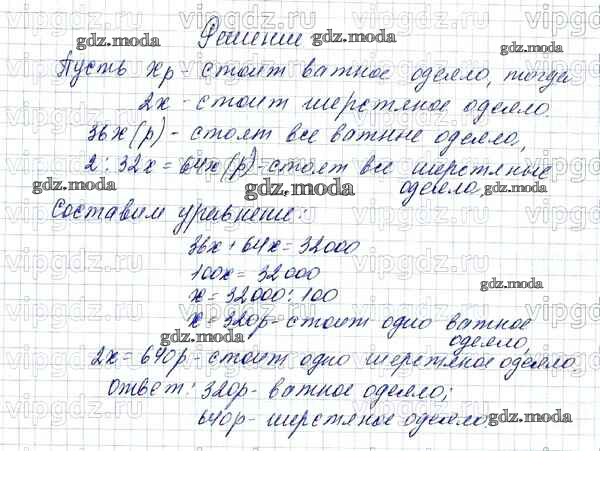 Решение
Пусть xр - стоит ватное одеяло, тогда
2x - стоит шерстяное одеяло.
36x(р) - стоят все ватные одеяло,
2 · 32x = 64x(р) - стоят все шерстяные
одеяло,
Составим уравнение:
36x + 64x = 32000
100x = 32000
x = 32000 : 100
x = 320р - стоит одно ватное
одеяло,
2x = 640р - стоит одно шерстяное одеяло.
Ответ: 320р - ватное одеяло;
640р - шерстяное одеяло.
vipgdz.ru
gdz.moda